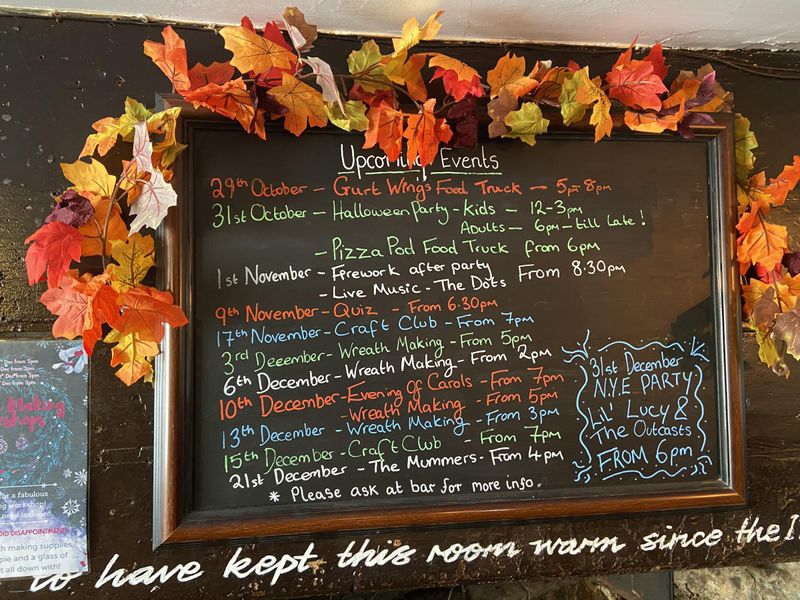 Upcoming Events
29th October - Gurt Wings Food Truck - 5pm 8pm
31st October - Halloween Party - Kids - 12-3pm
Adults - 6pm - till Late!
- Pizza Pod Food Truck from 6pm
1st November - Firework after party
- Live Music - The Dots From 8:30pm
9th November - Quiz - From 6.30pm
17th November - Craft Club - From 7pm
3rd December - Wreath Making - From 5pm
6th December - Wreath Making - From 2pm
10th December - Evening of Carols - From 7pm
- Wreath Making - From 5pm
13th December - Wreath Making - From 3pm
15th December - Craft Club - From 7pm
21st December - The Mummers - From 4pm
* Please ask at bar for more info.
31st December
N.Y.E PARTY
Lil' Lucy &
The Outcasts
FROM 6pm
Dec from 5pm
Dec from 2pm
Dec from 5pm
Dec from 3pm
Making
for a fabulous
ing workshop!
need included.
OID DISAPPOINTMENT!
th making supplies,
pie and a glass of
it all down with!
to have kept this room warm since the